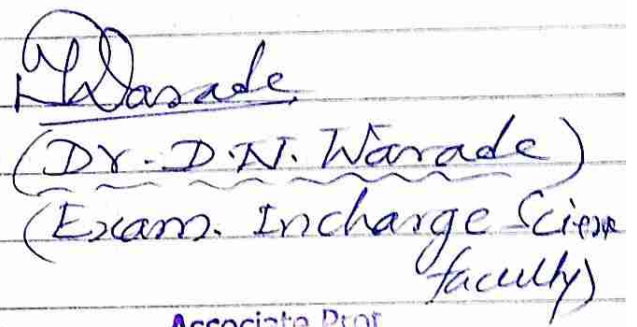 Warade
(Dr. D.N. Warade)
(Exam. Incharge Science
faculty)
Associate Prof